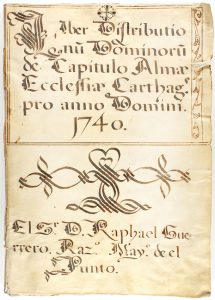 Liber Distributio
nũ Dominorũ
de Capitulo Almæ
Ecclessiæ Carthag.
pro anno Domini.
1740.
El Sr. D. Raphael Gue
rrero. Razo. Mayo. de el
Punto.